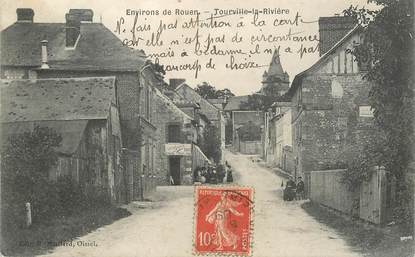 Environs de Rouen. - Tourville-la-Rivière
N'fais pas attention à la cart
car elle n'est pas de circonstance
mais à bédanne il n'y a pas
beaucoup de choix
10
Oissel